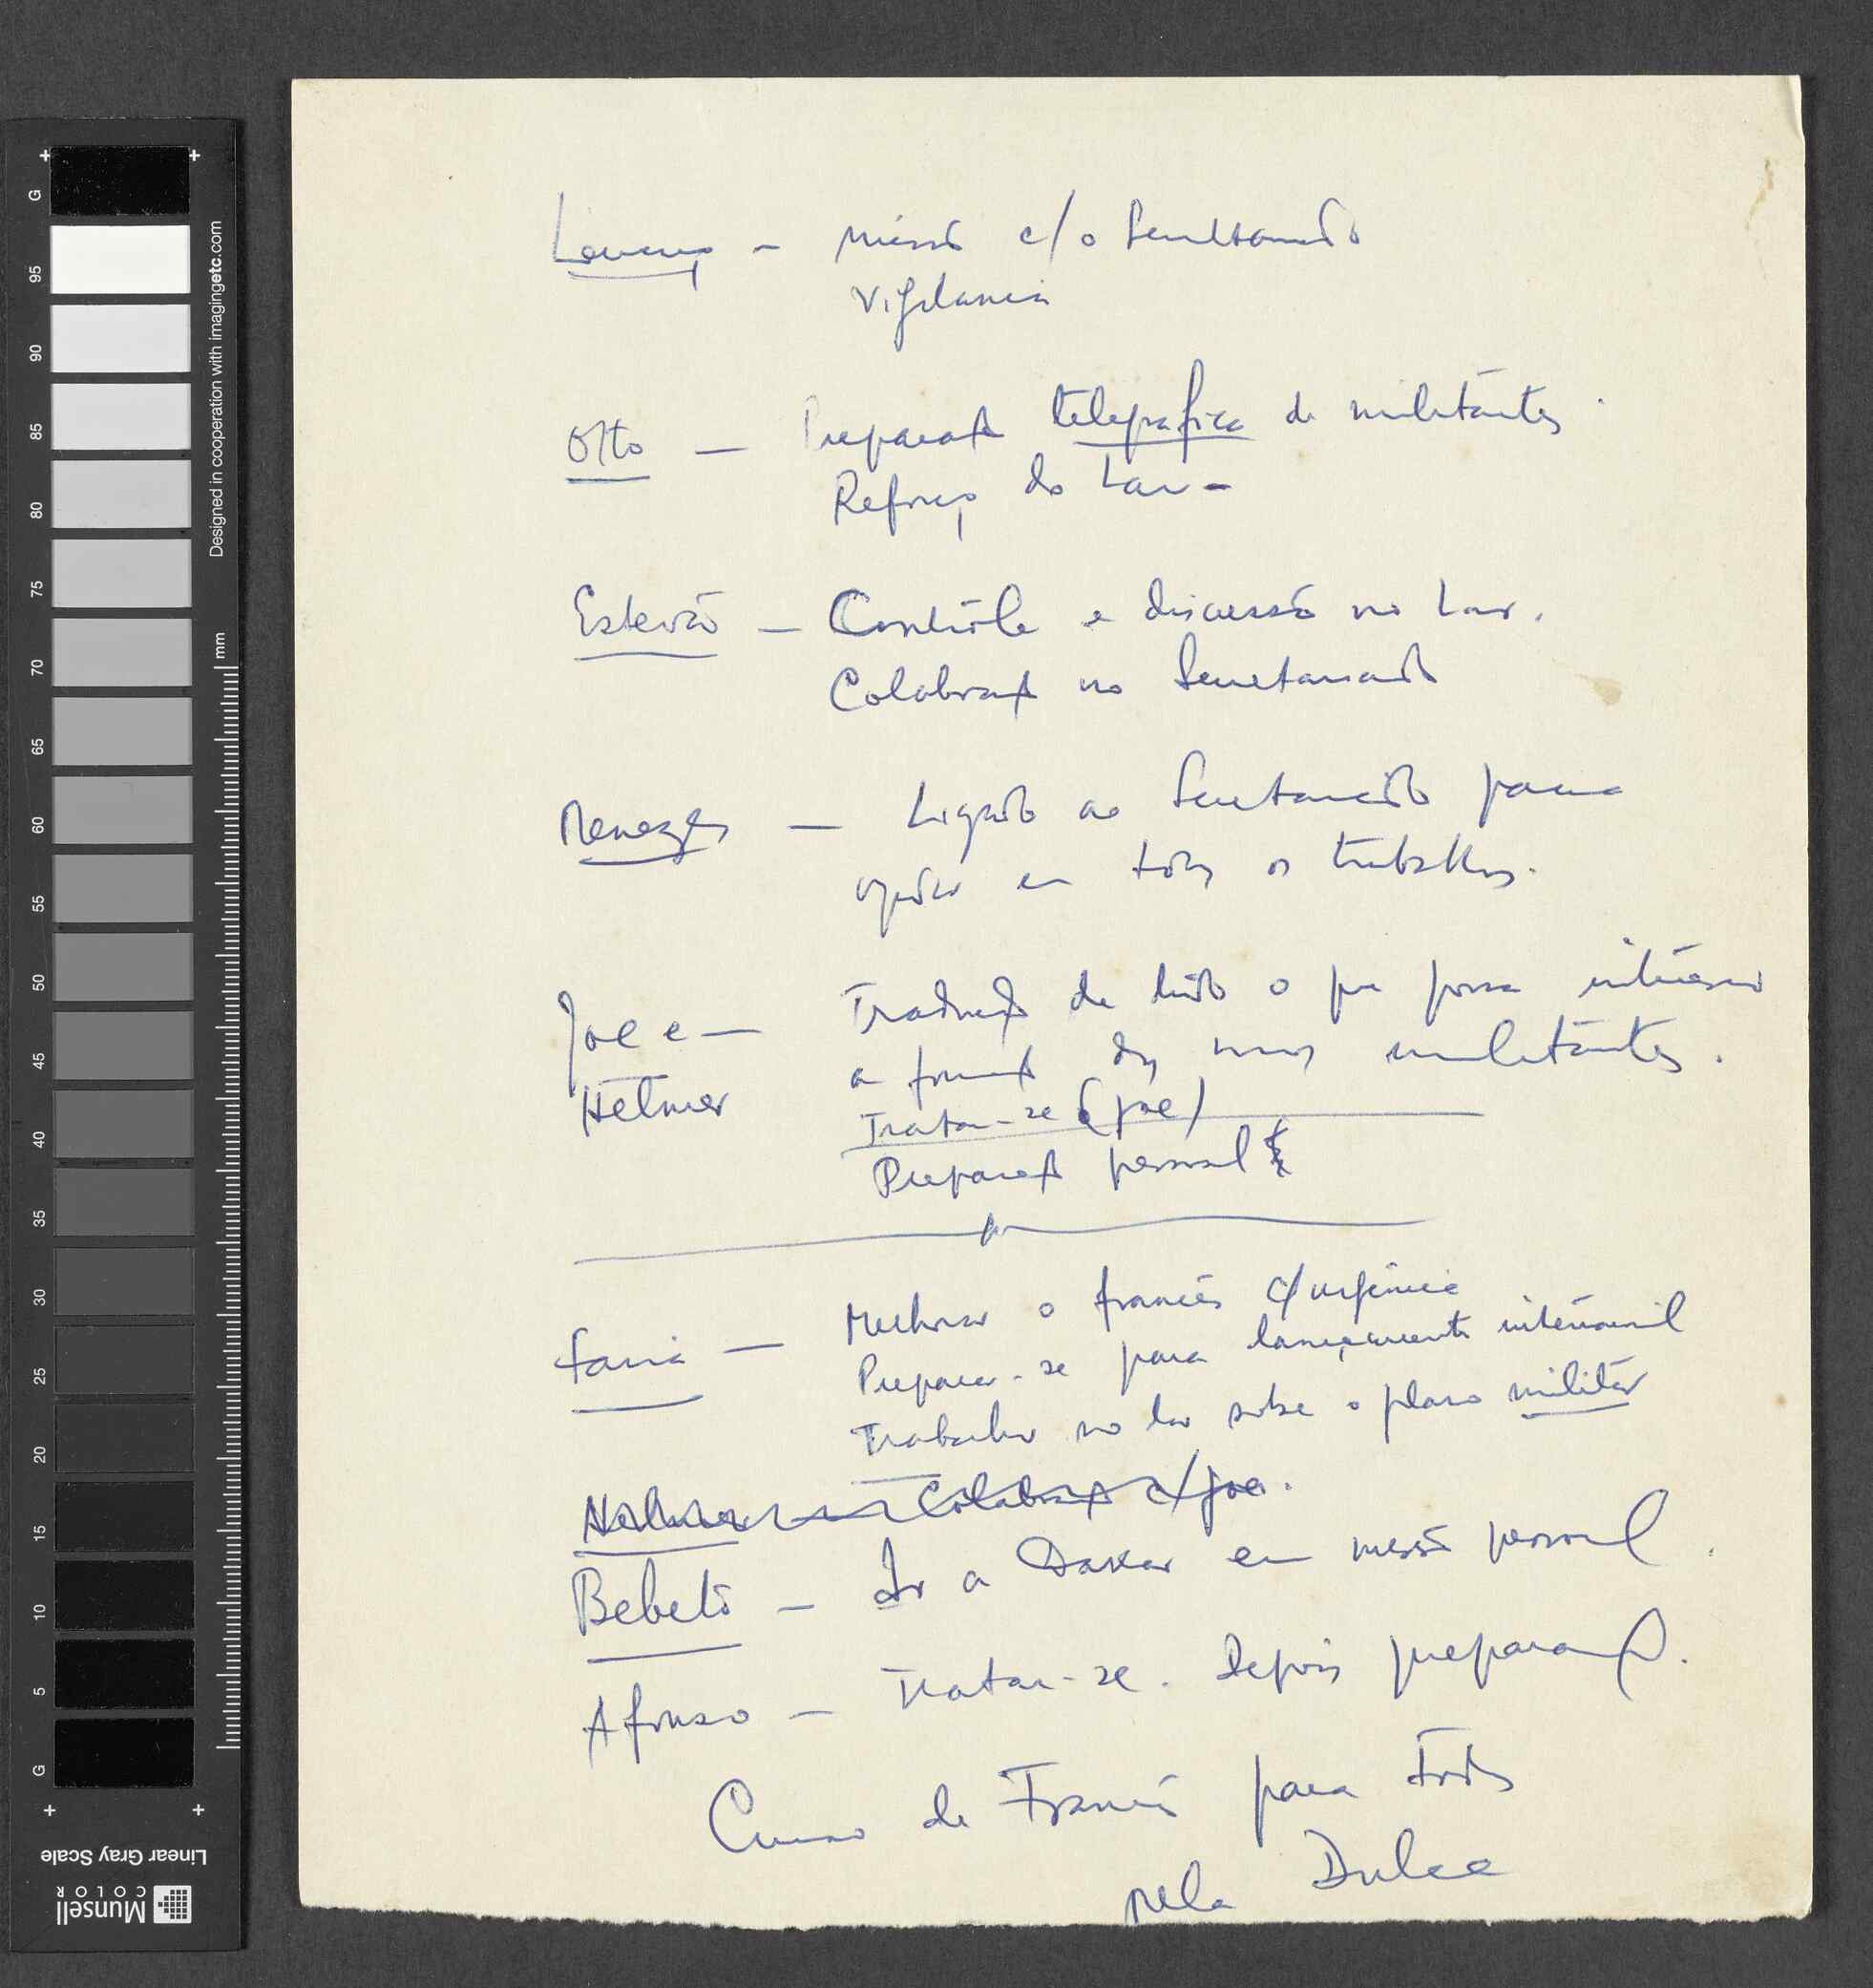 Lourenço – Missão c/o Secretariado
Vigilancia
Otto — Preparação telegrafica de militantes.
Reforço do Lar –
Estevão — Contrôle e discussão no Lar.
Colaboração no Secretariado
Menezes — Ligado ao Secretariado para
ajudar em todos os trabalhos.
Joe e — Tradução de tudo o que possa interessar
Helmer a formação dos nossos militantes.
Tratar-se (Joe)
Preparação pessoal
Faria — Melhorar o francês c/ urgência
Preparar-se para lançamento internacional
Trabalhar no lar sobre o plano militar
Colaboração c/ Joe.
Bebeto — Ir a Dakar em missão pessoal.
Afonso — Tratar-se. Depois preparação.
Curso de Francês para todos
pela Dulce
G
95
90
85
80
75
70
65
60
55
50
45
40
35
30
25
20
15
10
5
G
mm
Designed in cooperation with imagingetc.com
Linear Gray Scale
Munsell
COLOR